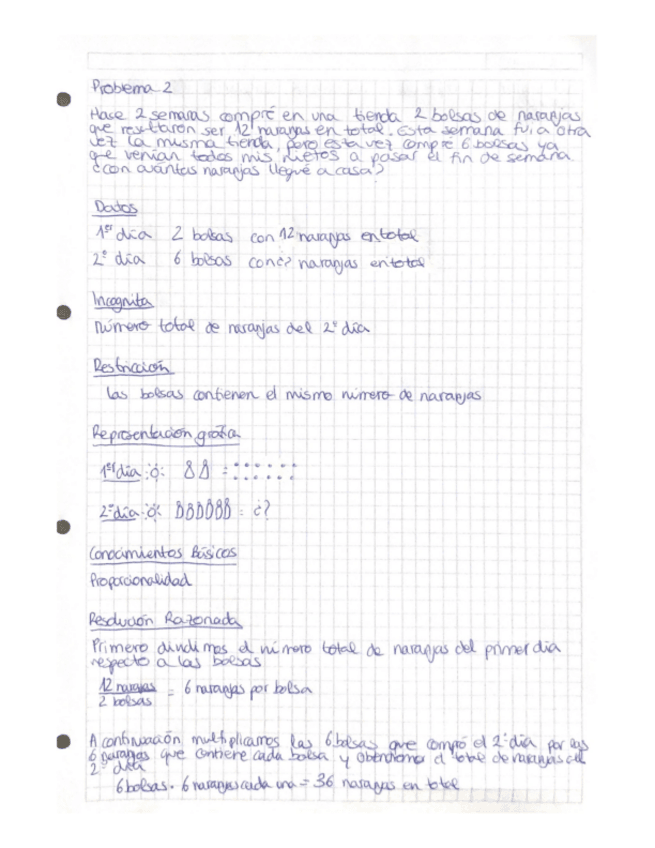 Problema 2
Hace 2 semanas compré en una tienda 2 bolsas de naranjas
que resultaron ser 12 naranjas en total. Esta semana fui a otra
vez la misma tienda, pero esta vez compré 6 bolsas ya
que venían todos mis nietos a pasar el fin de semana
¿con cuántas naranjas llegué a casa?
Datos
1er día 2 bolsas con 12 naranjas en total
2º día 6 bolsas con ¿? naranjas en total
Incognita
Número total de naranjas del 2º día
Restricción
Las bolsas contienen el mismo número de naranjas
Representación gráfica
1er día
=
2º día
= ¿?
Conocimientos Básicos
Proporcionalidad
Resolución Razonada
Primero dividimos el número total de naranjas del primer día
respecto a las bolsas
12 naranjas
2 bolsas
= 6 naranjas por bolsa
A continuación multiplicamos las 6 bolsas que compró el 2º día por las
6 naranjas que contiene cada bolsa y obtendremos el total de naranjas del
2º día
6 bolsas · 6 naranjas cada una = 36 naranjas en total